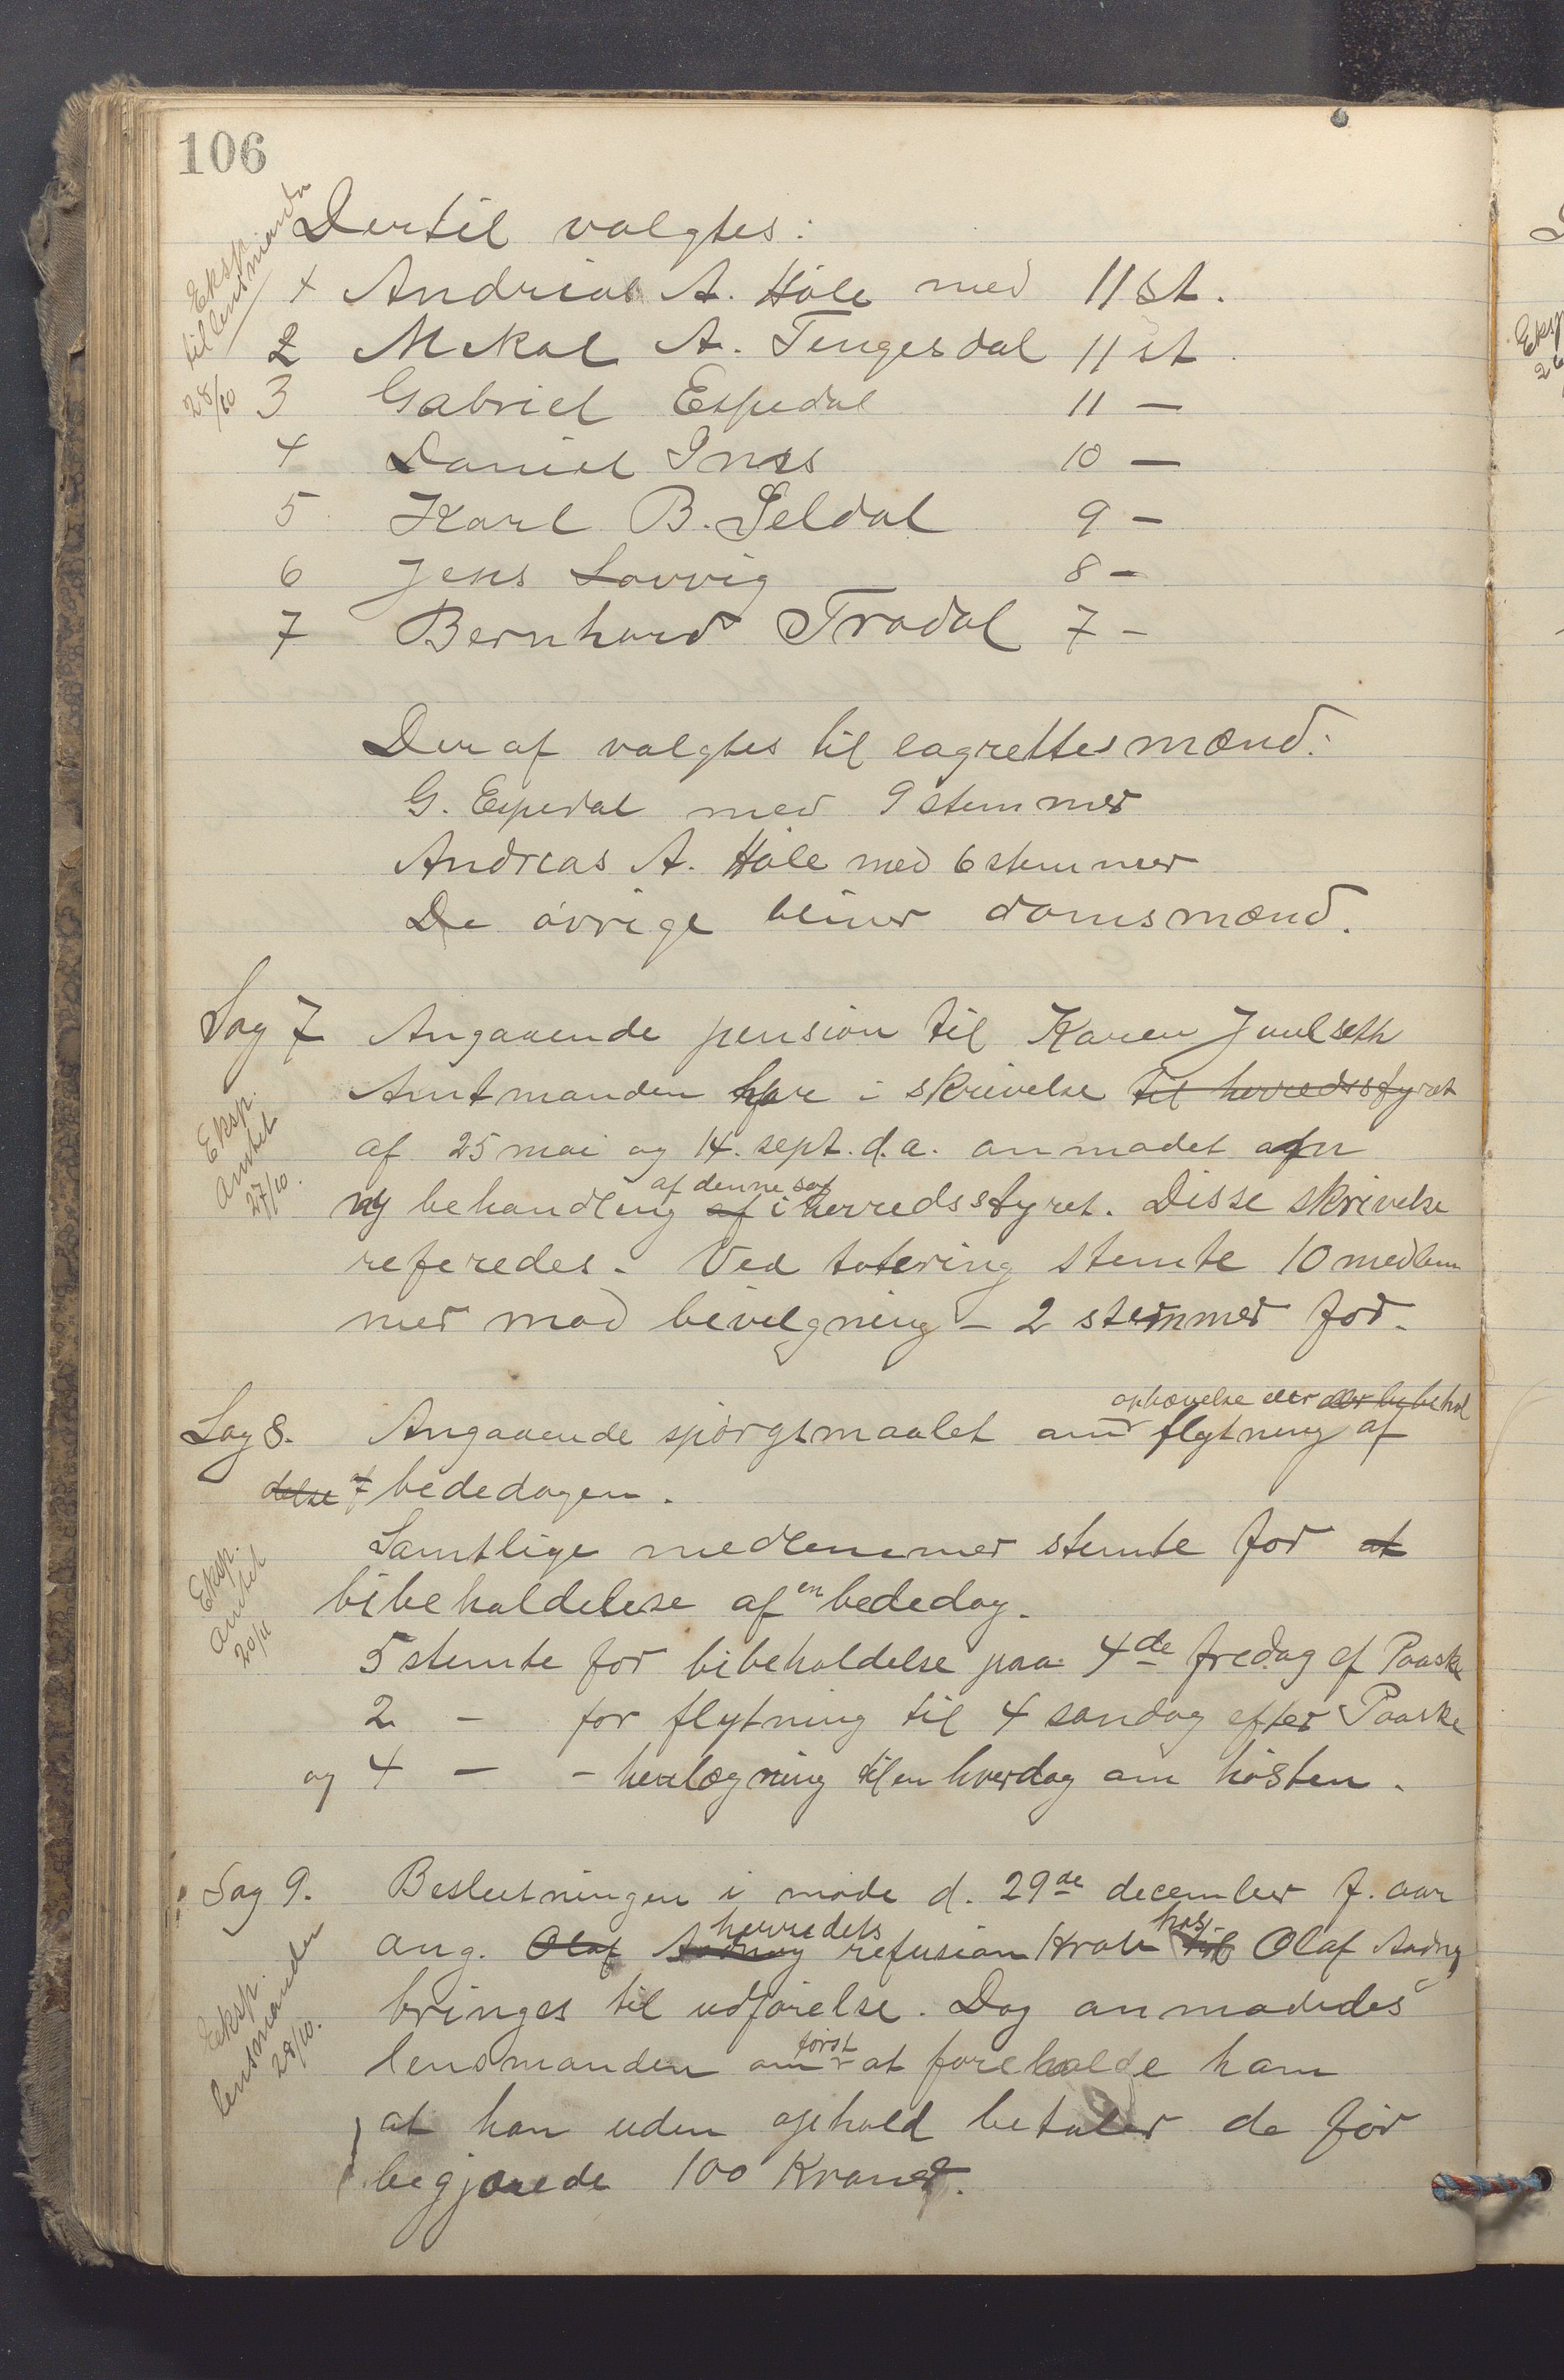 106
Dertil valgtes:
Eksp.
til lensmanden
28/10
+ Andreas A. Høle med 11 st.
2 Mikal A. Tengesdal 11 st.
3 Gabriel Espedal 11 —
4 Daniel Imss 10 —
5 Karl B. Seldal 9 -
6 Jens Lovvig 8 -
7 Bernhard Frodal 7 -
Deraf valgtes til lagrettesmænd:
G. Espedal med 9 stemmer
Andreas A. Høle med 6 stemmer
De øvrige bliver domsmænd.
Sag 7 Angaaende pension til Karen Juulseth
Amtmanden har i skrivelse til herredsstyret
Eksp.
amtet
27/10.
af 25 mai og 14. sept. d.a. anmodet om
ny behandling af af denne sag i herredsstyret. Disse skrivelse
referedes. Ved votering stemte 10 medlem
mer mod bevilgning - 2 stemmer for.
Sag 8. Angaaende spørgsmaalet om ophævelse eller eller bebehol flytning af
delse af bededagen.
Eksp.
amtet
20/11
Samtlige medlemmer stemte for at
bibeholdelse af en bededag.
5 stemte for bibeholdelse paa 4de fredag ef Paaske
2 - for flytning til 4 søndag efter Paaske
og 4 - - henlægning til en hverdag om høsten.
Sag 9. Beslutningen i møde d. 29de december f. aar
ang. Olaf Aadnøy herredets refusion krav til hos Olaf Aadnøy
Eksp.
lensmanden
28/10.
bringes til udførelse. Dog anmodedes
lensmanden om først at foreholde ham
at han uden ophold betaler de før
begjærede 100 Kroner.